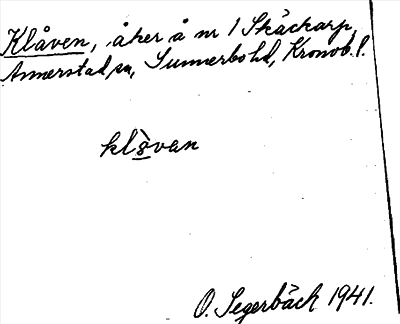 Klåven, åker å nr 1 Skäckarp,
Annerstad sn, Sunnerbo hd, Kronob. l.
klåvan
O. Segerbäck 1941.